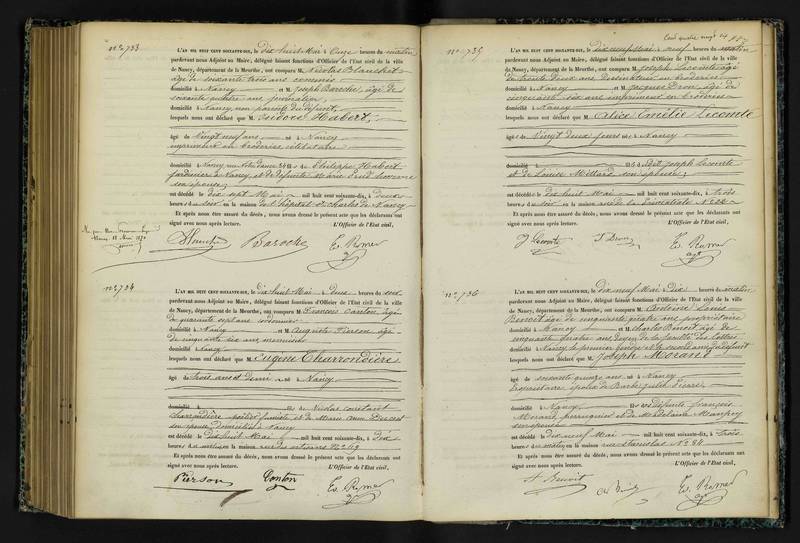 n° 733
L'AN MIL HUIT CENT SOIXANTE-DIX, le dix huit Mai à Onze heures du matin
pardevant nous Adjoint au Maire, délégué faisant fonctions d'Officier de l'État civil de la ville
de Nancy, département de la Meurthe, ont comparu M. Nicolas Blanchet
âgé de soixante trois ans commis
domicilié à Nancy et M. Joseph Baroche, âgé de
soixante quatre ans
domicilié à Nancy, non parents du défunt,
lesquels nous ont déclaré que M. Isidore Habert,
âgé de Vingt neuf ans né à Nancy
imprimeur en broderies célibataire
domicilié à Nancy fils de Philippe Habert
jardinier à Nancy, et de défunte Marie
son épouse;
est décédé le dix sept Mai mil huit cent soixante-dix, à deux
heures du soir en la maison de l'hôpital St Charles de Nancy
Et après nous être assuré du décès, nous avons dressé le présent acte que les déclarants ont
signé avec nous après lecture. L'Officier de l'État civil,
Baroche
n° 734
L'AN MIL HUIT CENT SOIXANTE-DIX, le dix huit Mai à deux heures du soir
pardevant nous Adjoint au Maire, délégué faisant fonctions d'Officier de l'État civil de la ville
de Nancy, département de la Meurthe, ont comparu M. François Conton âgé
de quarante sept ans cordonnier
domicilié à Nancy et M. Auguste Pierson âgé
de cinquante six ans menuisier
domicilié à Nancy
lesquels nous ont déclaré que M. Eugène Charrondière
âgé de trois ans et demi né à Nancy
domicilié à fils de Nicolas constant
Charrondière et de Marie
son épouse domiciliés à Nancy
est décédé le dix huit Mai mil huit cent soixante-dix, à Dix
heures du matin en la maison rue des artisans N°
Et après nous être assuré du décès, nous avons dressé le présent acte que les déclarants ont
signé avec nous après lecture. L'Officier de l'État civil,
Pierson Conton
n° 735
L'AN MIL HUIT CENT SOIXANTE-DIX, le dix neuf Mai à neuf heures du matin
pardevant nous Adjoint au Maire, délégué faisant fonctions d'Officier de l'État civil de la ville
de Nancy, département de la Meurthe, ont comparu M. Joseph Lecomte âgé
de trente deux ans dessinateur en broderies
domicilié à Nancy et M. Jacques Dron âgé de
cinquante six ans imprimeur en broderies
domicilié à Nancy
lesquels nous ont déclaré que M. Alice Emélie Lecomte
âgée de Vingt deux jours née à Nancy
domicilié à fille de Joseph Lecomte
et de Louise Millard son épouse;
est décédé le dix huit Mai mil huit cent soixante-dix, à trois
heures du soir en la maison rue de la Primatiale N° 22
Et après nous être assuré du décès, nous avons dressé le présent acte que les déclarants ont
signé avec nous après lecture. L'Officier de l'État civil,
J Lecomte J Dron
n° 736
L'AN MIL HUIT CENT SOIXANTE-DIX, le dix neuf Mai à Dix heures du matin
pardevant nous Adjoint au Maire, délégué faisant fonctions d'Officier de l'État civil de la ville
de Nancy, département de la Meurthe, ont comparu M. Antoine Louis
Benoit âgé de cinquante quatre ans propriétaire
domicilié à Nancy et M. Charles Benoit âgé de
cinquante quatre ans doyen de la faculté des lettres
domicilié à Nancy le premier
lesquels nous ont déclaré que M. Joseph Morand
âgé de soixante quinze ans né à Nancy
propriétaire, époux de Barbe Julie
domicilié à Nancy, fils de défunts François
Morand perruquier et de Madelaine
son épouse
est décédé le dix neuf Mai mil huit cent soixante-dix, à trois
heures du matin en la maison rue stanislas N° 84
Et après nous être assuré du décès, nous avons dressé le présent acte que les déclarants ont
signé avec nous après lecture. L'Officier de l'État civil,
Benoit